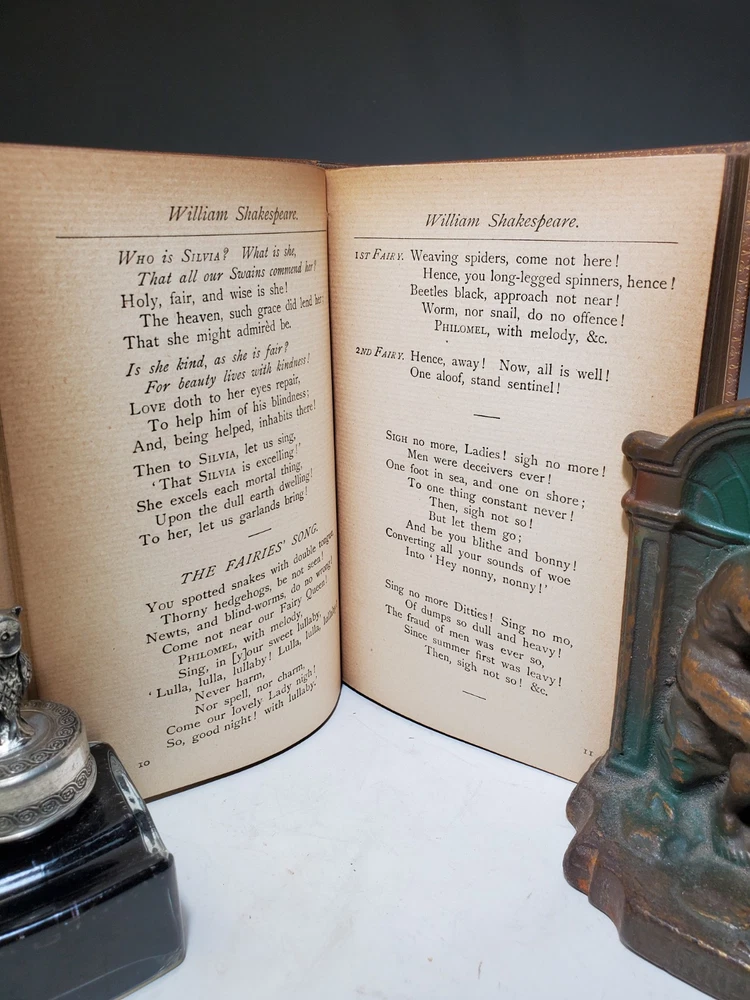 William Shakespeare.
WHO IS SILVIA? What is she,
That all our Swains commend her?
Holy, fair, and wise is she!
The heaven, such grace did lend her,
That she might admirèd be.
Is she kind, as she is fair?
For beauty lives with kindness!
LOVE doth to her eyes repair,
To help him of his blindness;
And, being helped, inhabits there!
Then to SILVIA, let us sing,
'That SILVIA is excelling!'
She excels each mortal thing,
Upon the dull earth dwelling!
To her, let us garlands bring!
THE FAIRIES' SONG.
YOU spotted snakes with double tongue,
Thorny hedgehogs, be not seen!
Newts, and blind-worms, do no wrong!
Come not near our Fairy Queen!
PHILOMEL, with melody,
Sing, in [y]our sweet lullaby,
'Lulla, lulla, lullaby! Lulla, lulla, lullaby!
Never harm,
Nor spell, nor charm,
Come our lovely Lady nigh!
So, good night! with lullaby.'
10
William Shakespeare.
1ST FAIRY. Weaving spiders, come not here!
Hence, you long-legged spinners, hence!
Beetles black, approach not near!
Worm, nor snail, do no offence!
PHILOMEL, with melody, &c.
2ND FAIRY. Hence, away! Now, all is well!
One aloof, stand sentinel!
SIGH no more, Ladies! sigh no more!
Men were deceivers ever!
One foot in sea, and one on shore;
To one thing constant never!
Then, sigh not so!
But let them go;
And be you blithe and bonny!
Converting all your sounds of woe
Into 'Hey nonny, nonny!'
Sing no more Ditties! Sing no mo,
Of dumps so dull and heavy!
The fraud of men was ever so,
Since summer first was leavy!
Then, sigh not so! &c.
11